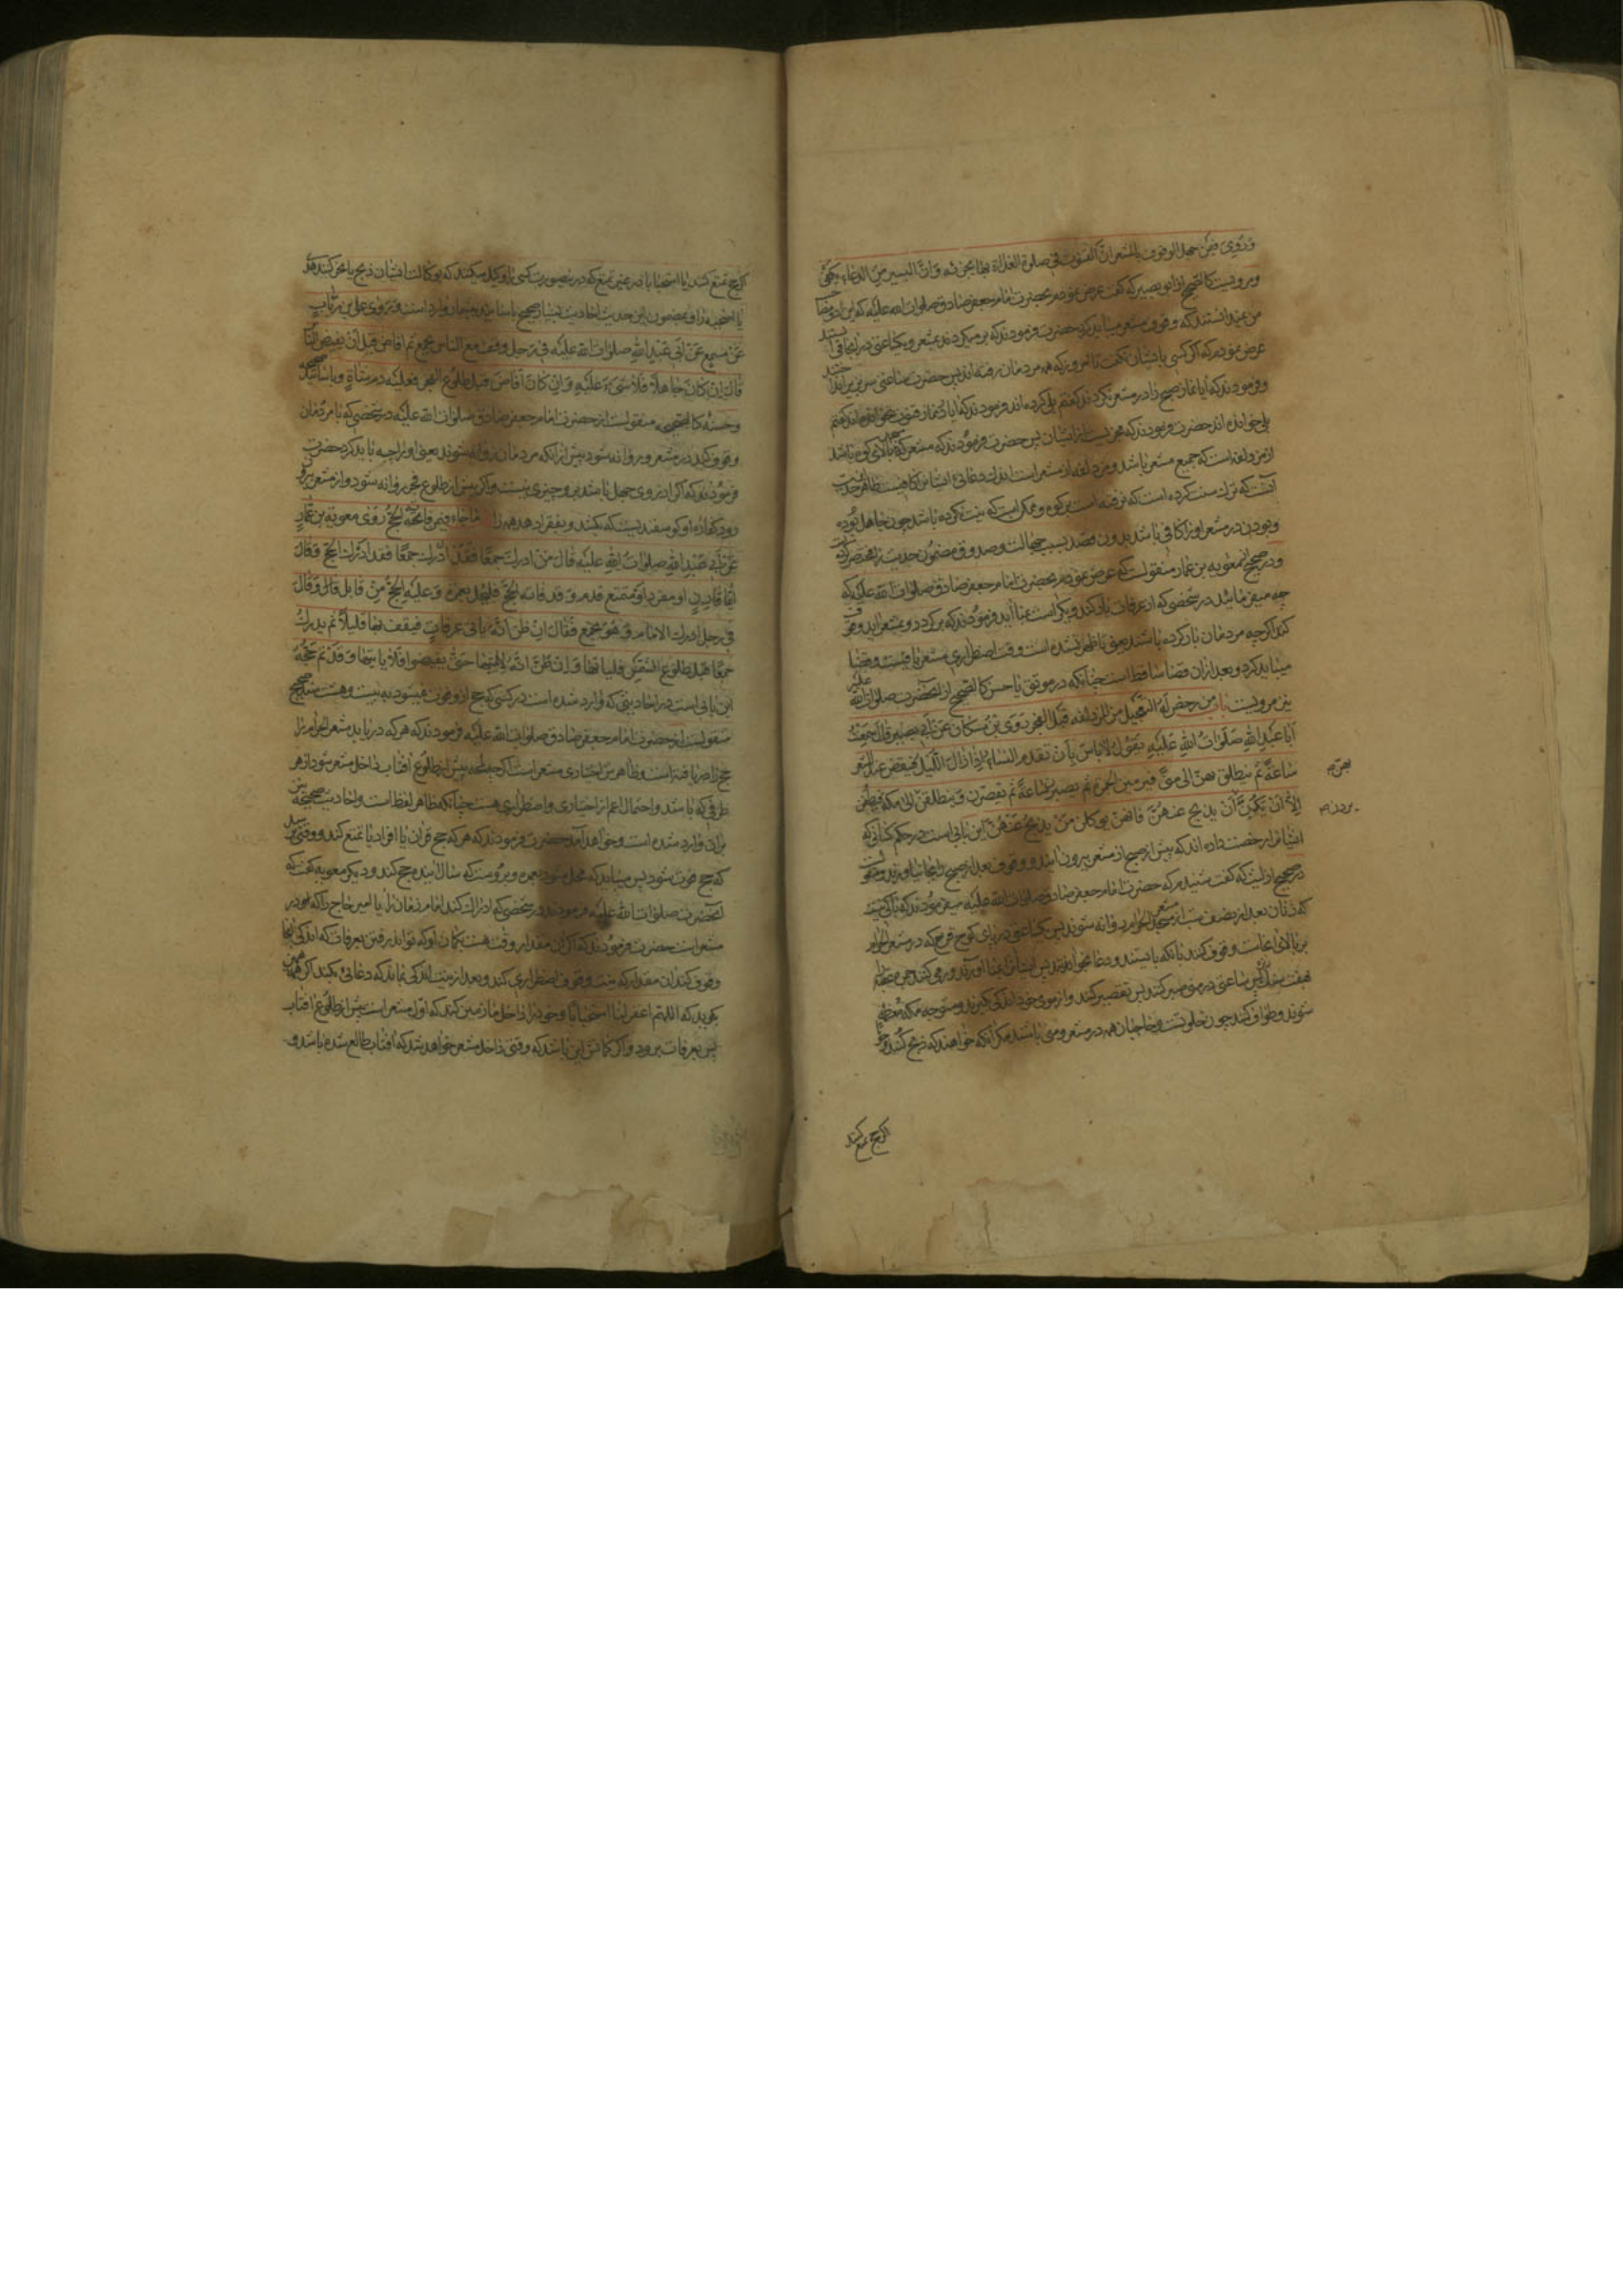 وَرُوِیَ فیمَن جهل الوقوف بالمشعر انّ القنوت فی صلوة الغداة بها یجزئه وَ انّ الیسیر من الدعاء یکفی
و مرویست کالصحیح از ابو بصیر که گفت عرض نمودم بحضرت امام جعفر صادق صلوات الله علیه که این دو
من نمیدانستند که وقوف مشعر میباید کرد حضرت فرمودند که برمیگردند بمشعر و یکساعتی در انجا می
عرض نمودم که اگر کسی بایشان نگفت تا امروز که همه مردمان رفته اند پس حضرت ساعتی سر بزیر
و فرمودند که ایا نماز صبح را در مشعر نکردند گفتم بلی کرده اند فرمودند که ایا در نماز قنوت نخوانده اند گفتم
بلی خوانده اند حضرت فرمودند که مجزیست از ایشان پس حضرت فرمودند که مشعر
از مزدلفه است که جمیع مشعر باشد و مزدلفه از مشعر است اندک دعائی ایشانرا کافیست ظاهر حدیث
انست که ترک سنت کرده است که نرفته است بر کوه و ممکن است که نیت نکرده باشد چون جاهل بوده
و بودن در مشعر او را کافی باشد بدون قصد بسبب جهالت و صدوق مضمون حدیث را مختصر کرده
و در صحیح از معویه بن عمار منقولست که عرض نمودم بحضرت امام جعفر صادق صلوات الله علیه که
چه میفرمائید در شخصی که از عرفات بار کند و یکراست بمنا اید فرمودند که برگردد و بمشعر اید و وقوف
کند اگر چه مردمان بار کرده باشند یعنی تا ظهر نشده است وقت اضطراری مشعر باقیست و قضا
میباید کرد و بعد از ان قضا ساقط است چنانکه در موثق یا حسن کالصحیح از انحضرت صلوات الله علیه
نیز مرویست باب من رخص له التعجیل من المزدلفه قبل الفجر رَوَی بن مُسکان عن ابی بصیر قال سمعت
اَبا عَبدِ اللهِ صَلَواتُ اللهِ عَلَیهِ یَقُولُ لاباس بِاَن تقدم النساء اِذا زالَ اللّیل فیقفن عند المشعر
ساعةً ثم ینطلق بهنّ الی منیً فیرمین الجمرة ثم یصبرن ساعةً ثم یقصّرن وَ ینطلقن الی مکه فیطفن
اِلاّ اَن یَکُنّ یُرِدنَ اَن یذبح عنهُنّ فانهن یوکلن مَن یذبح عَنهُنّ این بابی است در حکم کسانی که
ایشانرا رخصت داده اند که پیش از صبح از مشعر بیرون ایند و وقوف بعد از صبح را بجا نیاورند و منقولست
در صحیح از لیث که گفت شنیدم که حضرت امام جعفر صادق صلوات الله علیه میفرمودند که باکی نیست
که زنان بعد از نصف شب از مشعر الحرام روانه شوند پس یکساعتی در پای کوه قزح که در مشعر الحرام
بر بالای انجاست وقوف کنند بانکه بایستند و دعا بخوانند پس ایشانرا بمنا اورند و رمی کنند جمره عقبه را
بهفت سنگ پس ساعتی در منی صبر کنند پس تقصیر کنند و از موی خود اندکی بگیرند و متوجه مکه معظمه
شوند و طواف کنند چون خلوتست و حاجیان همه در مشعر و منی باشند مگر انکه خواهند که ذبح کنند
بهنّ صح
یردن صح
اگر حج تمتع کنند
اگر حج تمتع کنند یا استحبابا در غیر تمتع که در ینصورت کسی را وکیل میکنند که بوکالت ایشان ذبح یا نحر کنند هدی
یا اضحیه را و بمضمون این حدیث احادیث بسیار صحیح باسانید بیشمار وارد است وَ رَوَی علی بن رئاب
عَن مسمع عَن اَبی عَبدِ اللهِ صلوات الله علیه فی رجل وقف مع الناس بجمع ثم افاض قبل اَن یفیض النّاس
قال اِن کانَ جاهلاً فَلا شَیءَ عَلَیه وَ اِن کانَ اَفاضَ قبل طلوع الفجر فعلیه دم شاةٍ و باسانید صحیحه
و حسنه کالصحیحه منقولست از حضرت امام جعفر صادق صلوات الله علیه در شخصی که با مردمان
وقوف کند در مشعر و روانه شود پیش از انکه مردمان روانه شوند یعنی او را چه باید کرد حضرت
فرمودند که اگر از روی جهل باشد برو چیزی نیست و اگر پیش از طلوع فجر روانه شود و از مشعر بیرون
رود کفاره او گوسفندیست که بکشد و بفقرا دهد ما جاء فیمن فاته الحج رَوَی معویه بن عمارٍ
عَن اَبی عَبدِ اللهِ صلوات الله علیه قال مَن ادرکَ جمعًا فَقَد ادرک الحجّ فَقالَ
ایّما قارنٍ او مفردٍ او متمتعٍ قدم وَ قد فاته الحجّ فلیحل بعمرة وَ علیه الحجّ مِن قابل قال وَ قال
فی رجل ادرک الامام وَ هُوَ بجمع فقال ان ظنّ اَنّه یاتی عرفاتٍ فیقف بها قلیلاً ثم یدرک
جمعًا قبل طلوع الشمس فلیاتها وَ اِن ظنّ انّه لا یاتیها حَتّی یفیضوا فلا یاتها وَ قد تمّ حَجُّهُ
این بابی است در احادیثی که وارد شده است در کسی که حج ازو فوت میشود بسند صحیح
منقولست از حضرت امام جعفر صادق صلوات الله علیه فرمودند که هر که دریابد مشعر الحرام را
حج را دریافته است و ظاهرش اختیاری مشعر است پیش از طلوع افتاب داخل مشعر شود از هر
طرفی که باشد و احتمال اعم از اختیاری و اضطراری هست چنانکه ظاهر لفظ است و احادیث صحیحه نیز
بران وارد شده است و خواهد امد حضرت فرمودند که هر که حج قران یا افراد یا تمتع کند و وقتی رسد
که حج فوت شود پس میباید که محل شود بعمره و بروست که سال اینده حج کند و دیگر معویه گفت که
انحضرت صلوات الله علیه فرمودند در شخصی که ادراک کند امام زمان را یا امیر حاج را که او در
مشعر است حضرت فرمودند که اگر ان مقدار وقت هست بگمان او که تواند رفتن بعرفات که اندکی انجا
وقوف کند ان مقدار که نیت وقوف اضطراری کند و بعد از نیت اندکی بماند که دعائی بکند اگر همین
بگوید که اللهم اغفر لنا استحبابا و خود را داخل مازمین کند که اول مشعر است پیش از طلوع افتاب
پس بعرفات برود و اگر گمانش این باشد که وقتی داخل مشعر خواهد شد که افتاب طالع شده باشد و